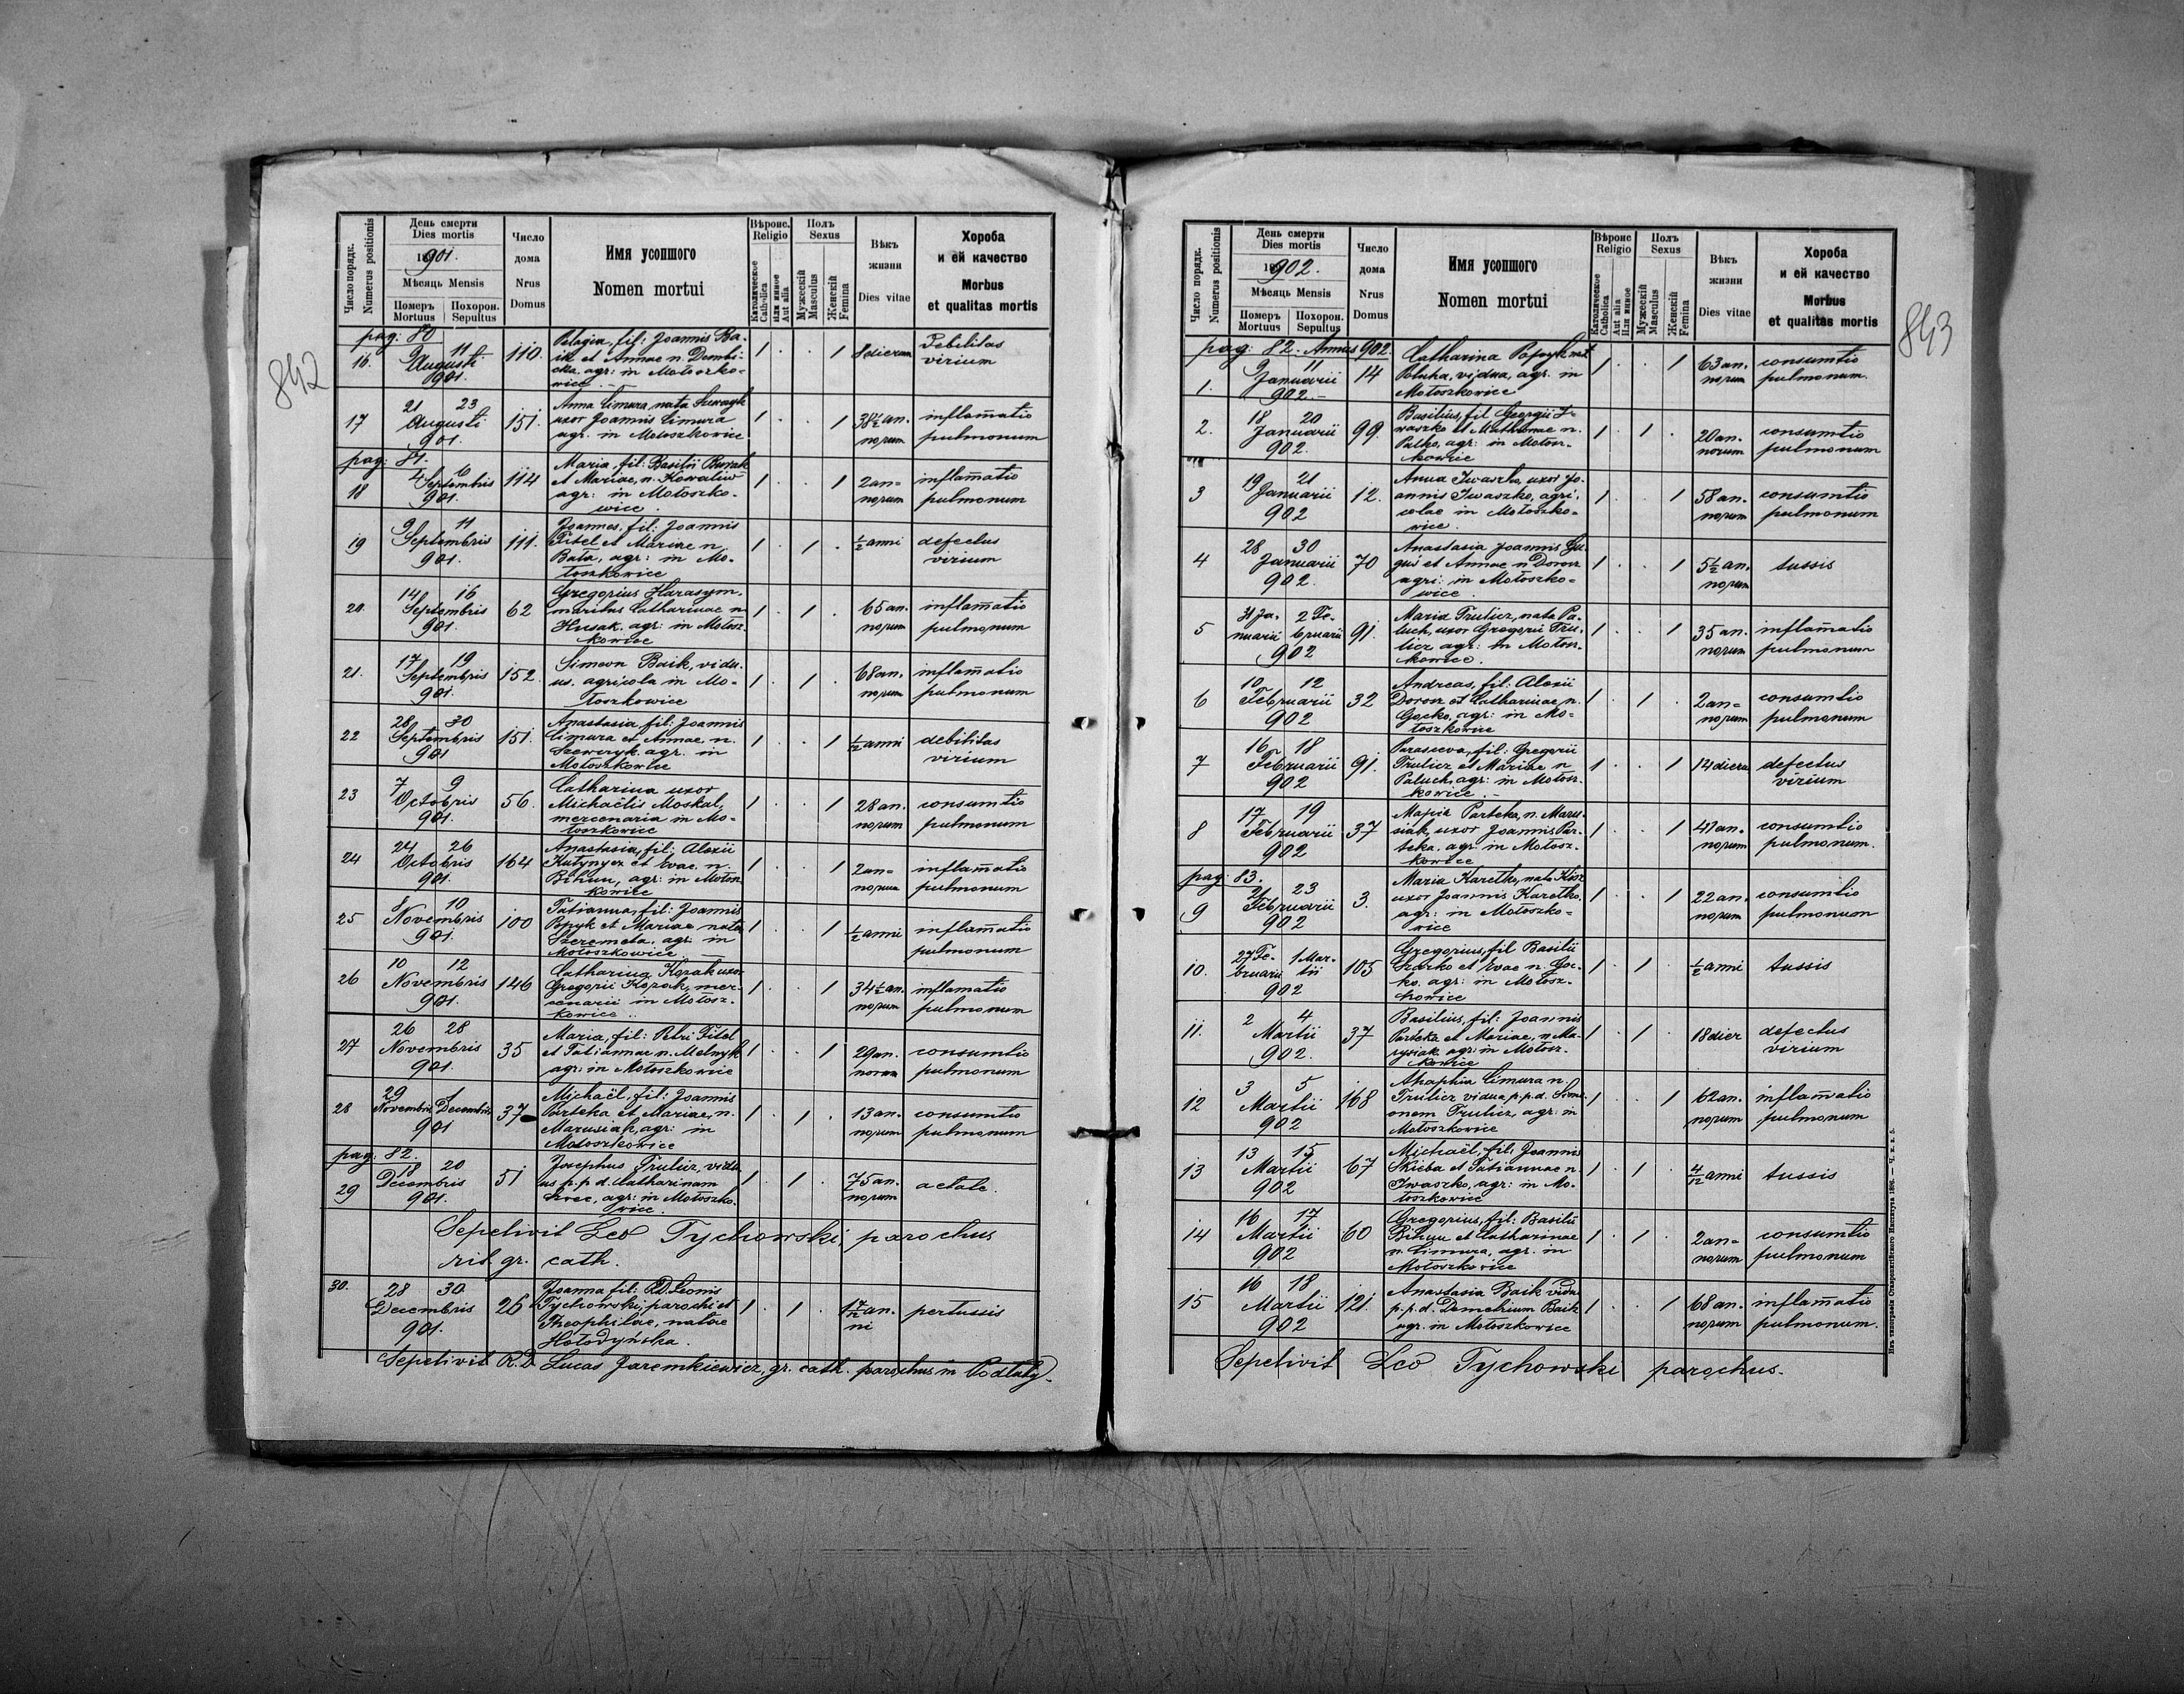 842
Число порядк.
Numerus positionis
День смерти
Dies mortis
18 901.
Мѣсяць Mensis
Померъ Похорон.
Mortuus Sepultus
Число
дома
Nrus
Domus
Имя усопшого
Nomen mortui
Вѣроис.
Religio
Католическое
Catholica
Или инное
Aut alia
Полъ
Sexus
Мужескій
Masculus
Женскій
Femina
Вѣкъ
жизни
Dies vitae
Хороба
и ей качество
Morbus
et qualitas mortis
pag: 80
16. 9 11 Augusti 901. 110. Pelagia, fil: Joannis Ba-
ik et Annae n. Dembi-
cka. agr: in Mołoszko-
wice. 1 . . 1 8 dierum Debilitas
virium
17 21 23 Augusti 901. 151. Anna Cimura nata Szewczyk
uxor Joannis Cimura
agr. in Mołoszkowice 1 . . 1 38½ an-
norum inflam̄atio
pulmonum
pag: 81.
18 4 6 Septembris 901. 114 Maria, fil: Basilii
et Mariae, n. Kowaliw
agr: in Mołoszko-
wice. 1 . . 1 2 an-
norum inflam̄atio
pulmonum
19 9 11 Septembris 901. 111. Joannes, fil: Joannis
Fitel et Mariae n
Bata, agr: in Mo-
łoszkowice 1 . 1 . ½ anni defectus
virium
20. 14 16 Septembris 901. 62 Gregorius Harasym,
maritus Catharinae n
Husak. agr: in Mołosz-
kowice 1 . 1 . 65 an-
norum inflam̄atio
pulmonum
21. 17 19 Septembris 901. 152. Simeon Baik, vidu-
us. agricola in Mo-
łoszkowice 1 . 1 . 68 an-
norum inflam̄atio
pulmonum
22 28 30 Septembris 901 151. Anastasia, fil: Joannis
Cimura et Annae, n.
Szewczyk agr. in
Mołoszkowice 1 . . 1 ½ anni debilitas
virium
23 7 9 Octobris 901. 56. Catharina uxor
Michaëlis Moskal,
mercenaria in Mo-
łoszkowice 1 . . 1 28 an.
norum consumtio
pulmonum
24 24 26 Octobris 901. 164 Anastasia, fil: Alexii
Kutynycz et Evae. n.
Bihun, agr: in Mołosz
kowice 1 . . 1 2 an-
norum inflam̄atio
pulmonum
25 8 10 Novembris 901. 100 Tatianna, fil: Joannis
Bpyk et Mariae nata
Szeremeta. agr. in
Mołoszkowice. 1 . . 1 ½ anni inflam̄atio
pulmonum
26 10 12 Novembris 901. 146 Catharina Kozak uxor
Gregorii Kozak, mer-
cenarii in Mołosz-
kowice. 1 . . 1 34½ an-
norum inflamatio
pulmonum
27 26 28 Novembris 901. 35 Maria, fil: Petri Fitel
et Tatiannae n. Melnyk
agr: in Mołoszkowice 1 . . 1 29 an.
norum consumtio
pulmonum
28 29 Novembris 1 Decembris 901 37 Michaël, fil: Joannis
Parteka et Mariae, n.
Marusiak, agr: in
Mołoszkowice 1 . 1 . 13 an-
norum consumtio
pulmonum
pag: 82.
29 18 20 Decembris 901. 51 Josephus Trulicz, vidu
us p.p.d. Catharinam
agr: in Mołoszko-
wice. 1 . 1 . 75 an.
norum aetate.
Sepelivit Leo Tychowski, parochus
rit. gr. cath.
30. 28 30 Decembris 901. 26 Joanna fil: R.D. Leonis
Tychowski, parochi et
Theophilae, natae
Hołodyńska. 1 . 1 . 1 7/12 an-
ni pertussis
Sepelivit R.D. Lucas Jaremkiewicz, gr. cath. parochus in Podłuby.
843
Число порядк.
Numerus positionis
День смерти
Dies mortis
18 902.
Мѣсяць Mensis
Померъ Похорон.
Mortuus Sepultus
Число
дома
Nrus
Domus
Имя усопшого
Nomen mortui
Вѣроис
Religio
Католическое
Catholica
Aut alia
Или инное
Полъ
Sexus
Мужескій
Masculus
Женскій
Femina
Вѣкъ
жизни
Dies vitae
Хороба
и ей качество
Morbus
et qualitas mortis
pag: 82. Annus 902.
1. 9 11 Januarii 902. 14 Catharina nat
Poluha, vidua, agr. in
Mołoszkowice 1 . . 1 63 an-
norum consumtio
pulmonum.
2. 18 20 Januarii 902. 99. Basilius, fil Georgii I-
waszko et Mathronae n.
Palko, agr: in Mołosz-
kowice 1 . 1 . 20 an-
norum consumtio
pulmonum
3 19 21 Januarii 902 12. Anna Iwaszko, uxor Jo-
annis Iwaszko, agri-
colae in Mołoszko-
wice. 1 . . 1 58 an-
norum consumtio
pulmonum
4 28 30 Januarii 902. 70 Anastasia Joannis
et Annae n Dorosz
agri: in Mołoszko-
wice. 1 . . 1 5½ an.
norum tussis
5 31 Ja-
nuarii 2 Fe-
bruarii 902 91. Maria Trulicz, nata Pa-
luch, uxor Gregorii Tru-
licz agr: in Mołosz-
kowice. 1 . . 1 35 an.
norum inflam̄atio
pulmonum
6 10 12 Februarii 902 32 Andreas, fil: Alexii
Dorosz et Catharinae, n.
Gocko, agr: in Mo-
łoszkowice 1 . 1 . 2 an-
norum consumtio
pulmonum
7 16 18 Februarii 902 91. Parasceva, fil: Gregorii
Trulicz et Mariae n
Paluch, agr: in Mołosz-
kowice. 1 . . 1 14 dierum defectus
virium
8 17 19 Februarii 902 37 Mapia Parteka, n. Maru-
siak, uxor Joannis Par-
teka. agr. in Mołosz-
kowice 1 . . 1 41 an-
norum consumtio
pulmonum.
pag: 83.
9 21 23 Februarii 902 3. Maria Karetko, nata
uxor Joannis Karetko.
agr: in Mołoszko-
wice 1 . . 1 22 an.
norum consumtio
pulmonum
10. 27 Fe-
bruarii 1 Mar-
tii 902 105 Gregorius, fil Basilii
et Evae n. Goc-
ko. agr: in Mołosz-
kowice 1 . 1 . ½ anni tussis
11. 2 4 Martii 902. 37 Basilius, fil: Joannis
Parteka et Mariae, n Ma-
rysiak agr: in Mołosz-
kowice 1 . 1 . 18 dier defectus
virium
12 3 5 Martii 902 168 Ahaphia Cimura n.
Trulicz vidua p.p.d. Sime-
onem Trulicz, agr. in
Mołoszkowice 1 . . 1 62 an.
norum inflam̄atio
pulmonum
13 13 15 Martii 902 67 Michaël, fil: Joannis
Skiba et Tatiannae n
Iwaszko, agr: in Mo-
łoszkowice 1 . 1 . 4/12 anni tussis
14 16 17 Martii 902 60 Gregorius, fil: Basilii
Bihun et Catharinae
n. Cimura, agr. in
Mołoszkowice 1 . 1 . 2 an-
norum consumtio
pulmonum
15 16 18 Martii 902 121. Anastasia Baik vidu
p.p.d. Demetrium Baik
agr. in Mołoszkowice 1 . . 1 68 an.
norum inflam̄atio
pulmonum.
Sepelivit Leo Tychowski parochus.
Изъ типографіи Ставропигійского Института 1896. — Ч. к. 5.